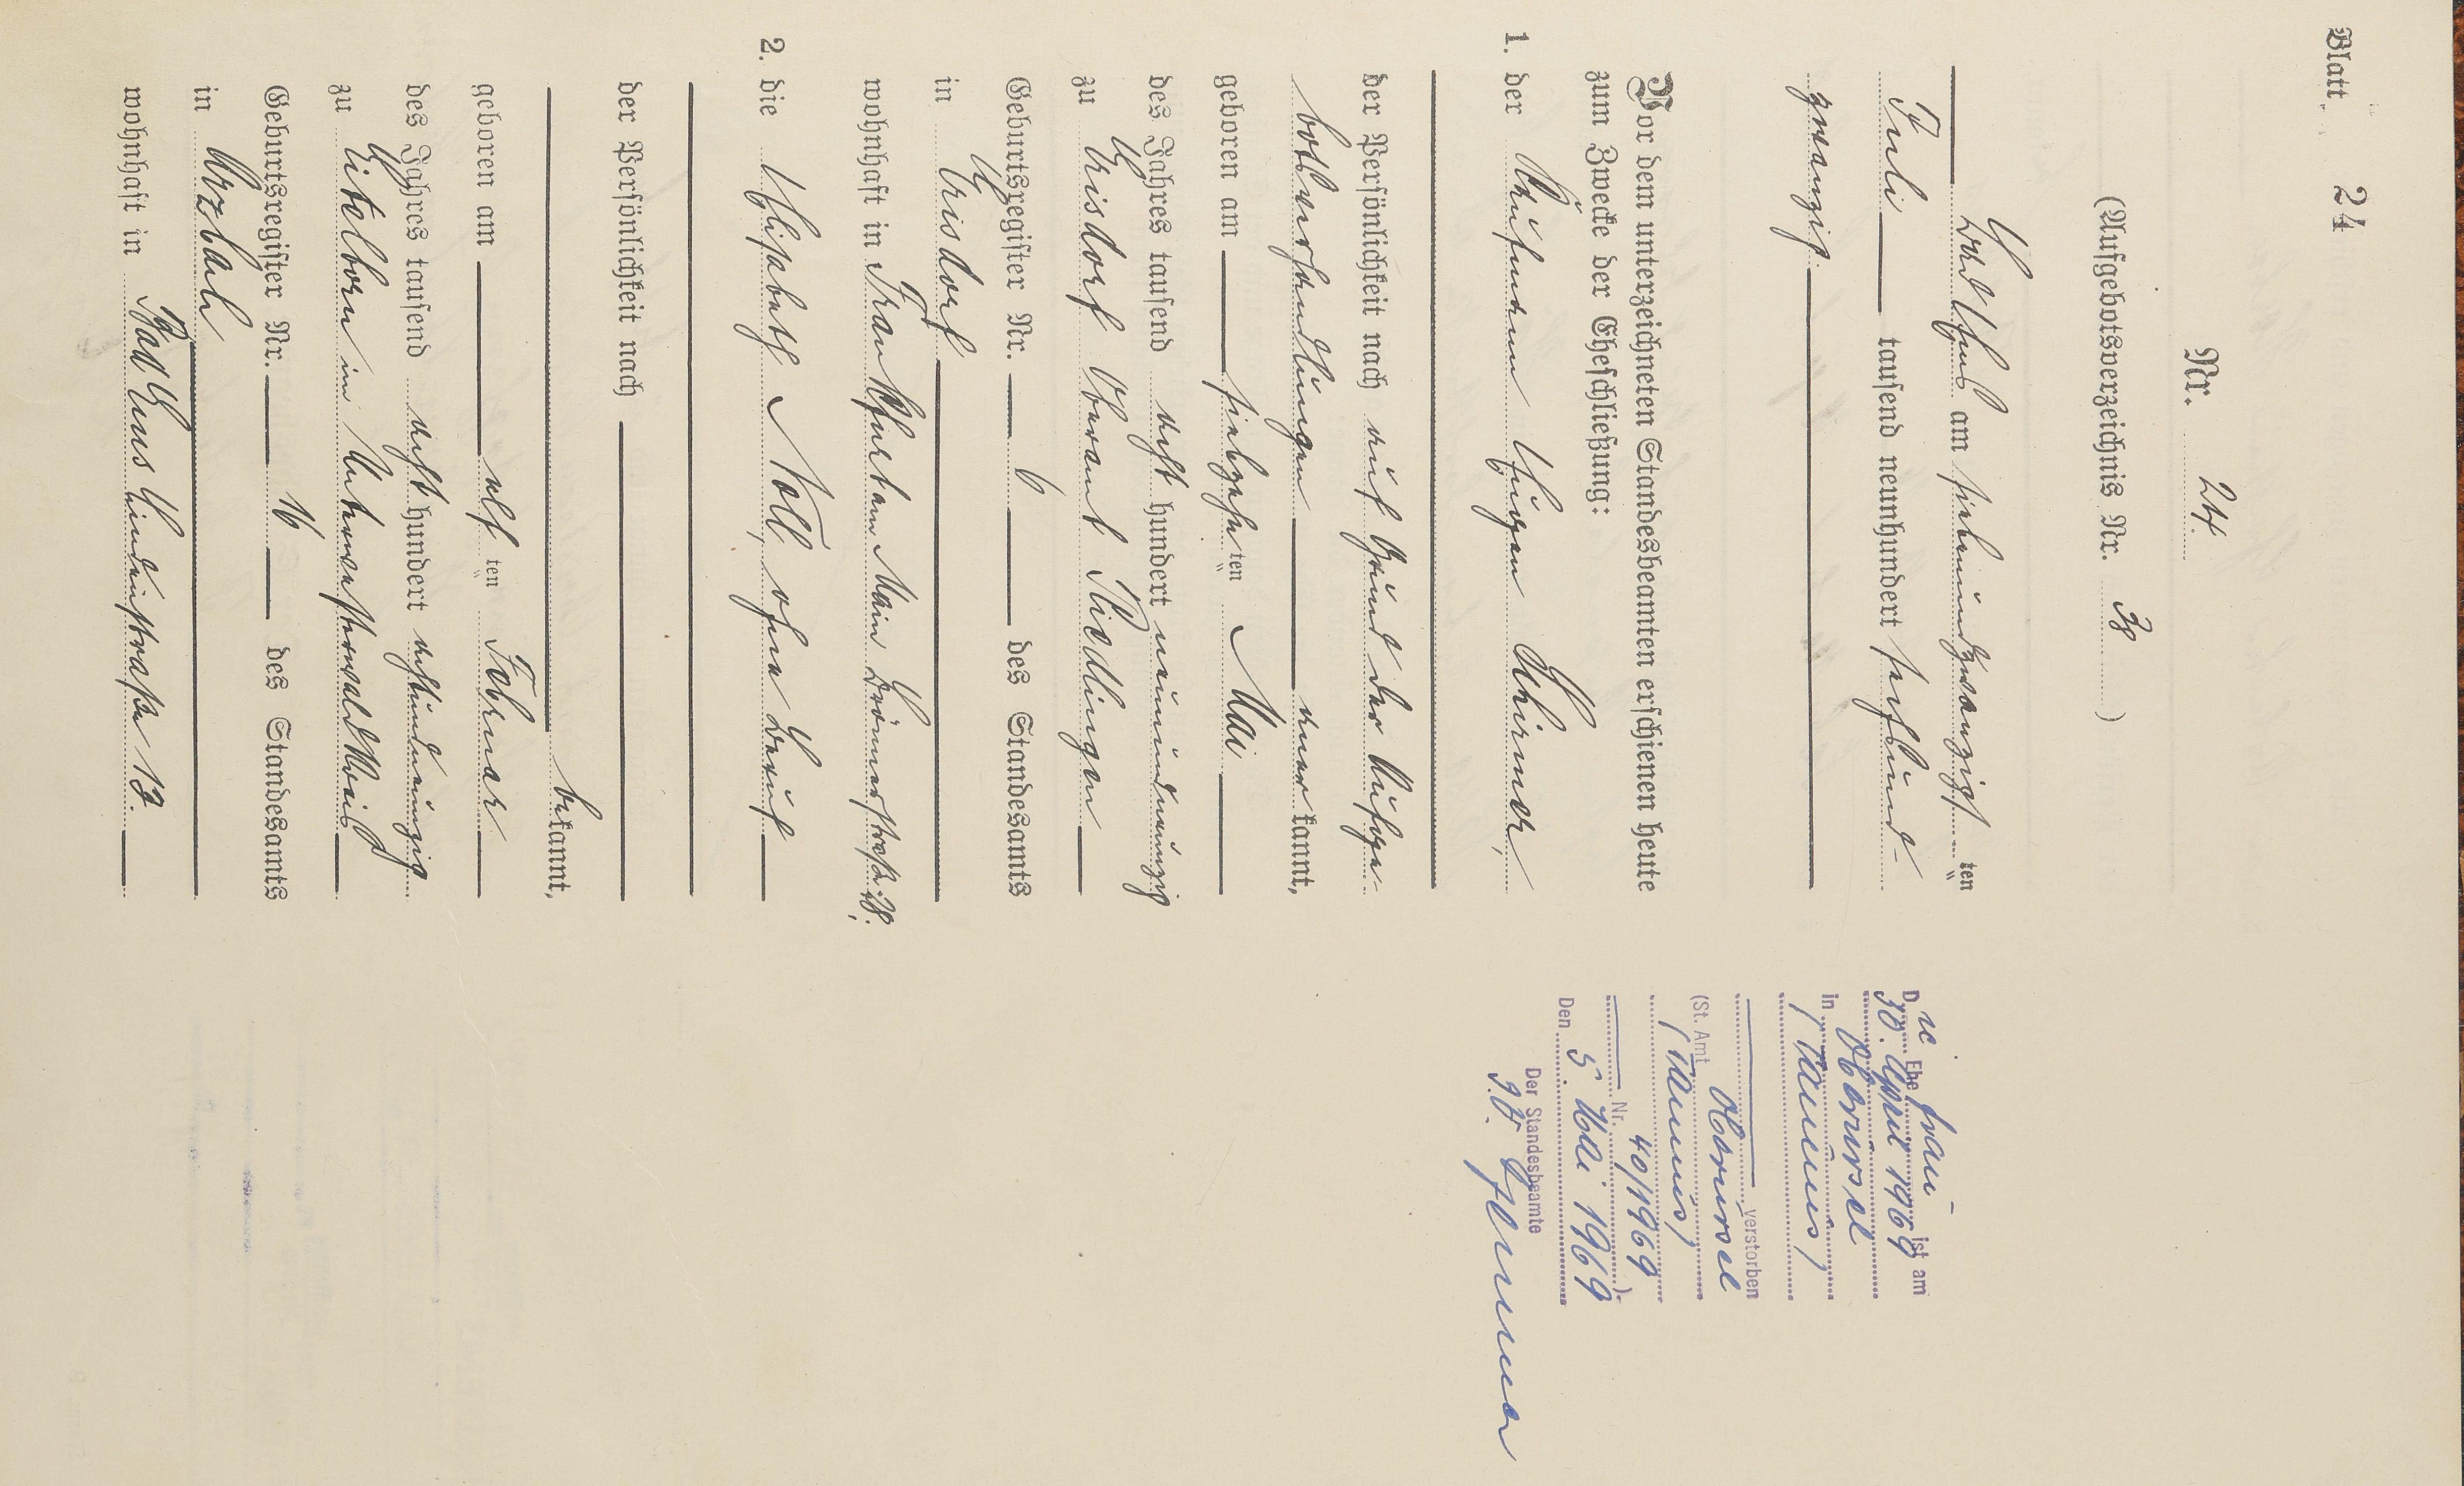 Blatt 24
Nr. 24.
(Aufgebotsverzeichnis Nr. 38)
Bad Ems am siebenundzwanzigsten
Juli tausend neunhundert sechsund-
zwanzig.
Vor dem unterzeichneten Standesbeamten erschienen heute
zum Zwecke der Eheschließung:
1. der Kaufmann Eugen Schirmer,
der Persönlichkeit nach auf Grund der Aufge-
botsverhandlungen anerkannt,
geboren am siebzehnten Mai
des Jahres tausend acht hundert neunundneunzig
zu Erisdorf Oberamt Riedlingen
Geburtsregister Nr. 6 des Standesamts
in Erisdorf
wohnhaft in Frankfurt am Main
2. die Elisabeth Noll, ohne Beruf
der Persönlichkeit nach
bekannt,
geboren am elften Februar
des Jahres tausend acht hundert achtundneunzig
zu Eitelborn im Unterwesterwaldkreis
Geburtsregister Nr. 16 des Standesamts
in Arzbach
wohnhaft in Bad Ems Lindenstraße 13.
Die Ehefrau ist am
30. April 1969
in Oberursel
(Taunus)
verstorben
(St. Amt Oberursel
(Taunus)
Nr. 40/1969)
Den 5. Mai 1969
Der Standesbeamte